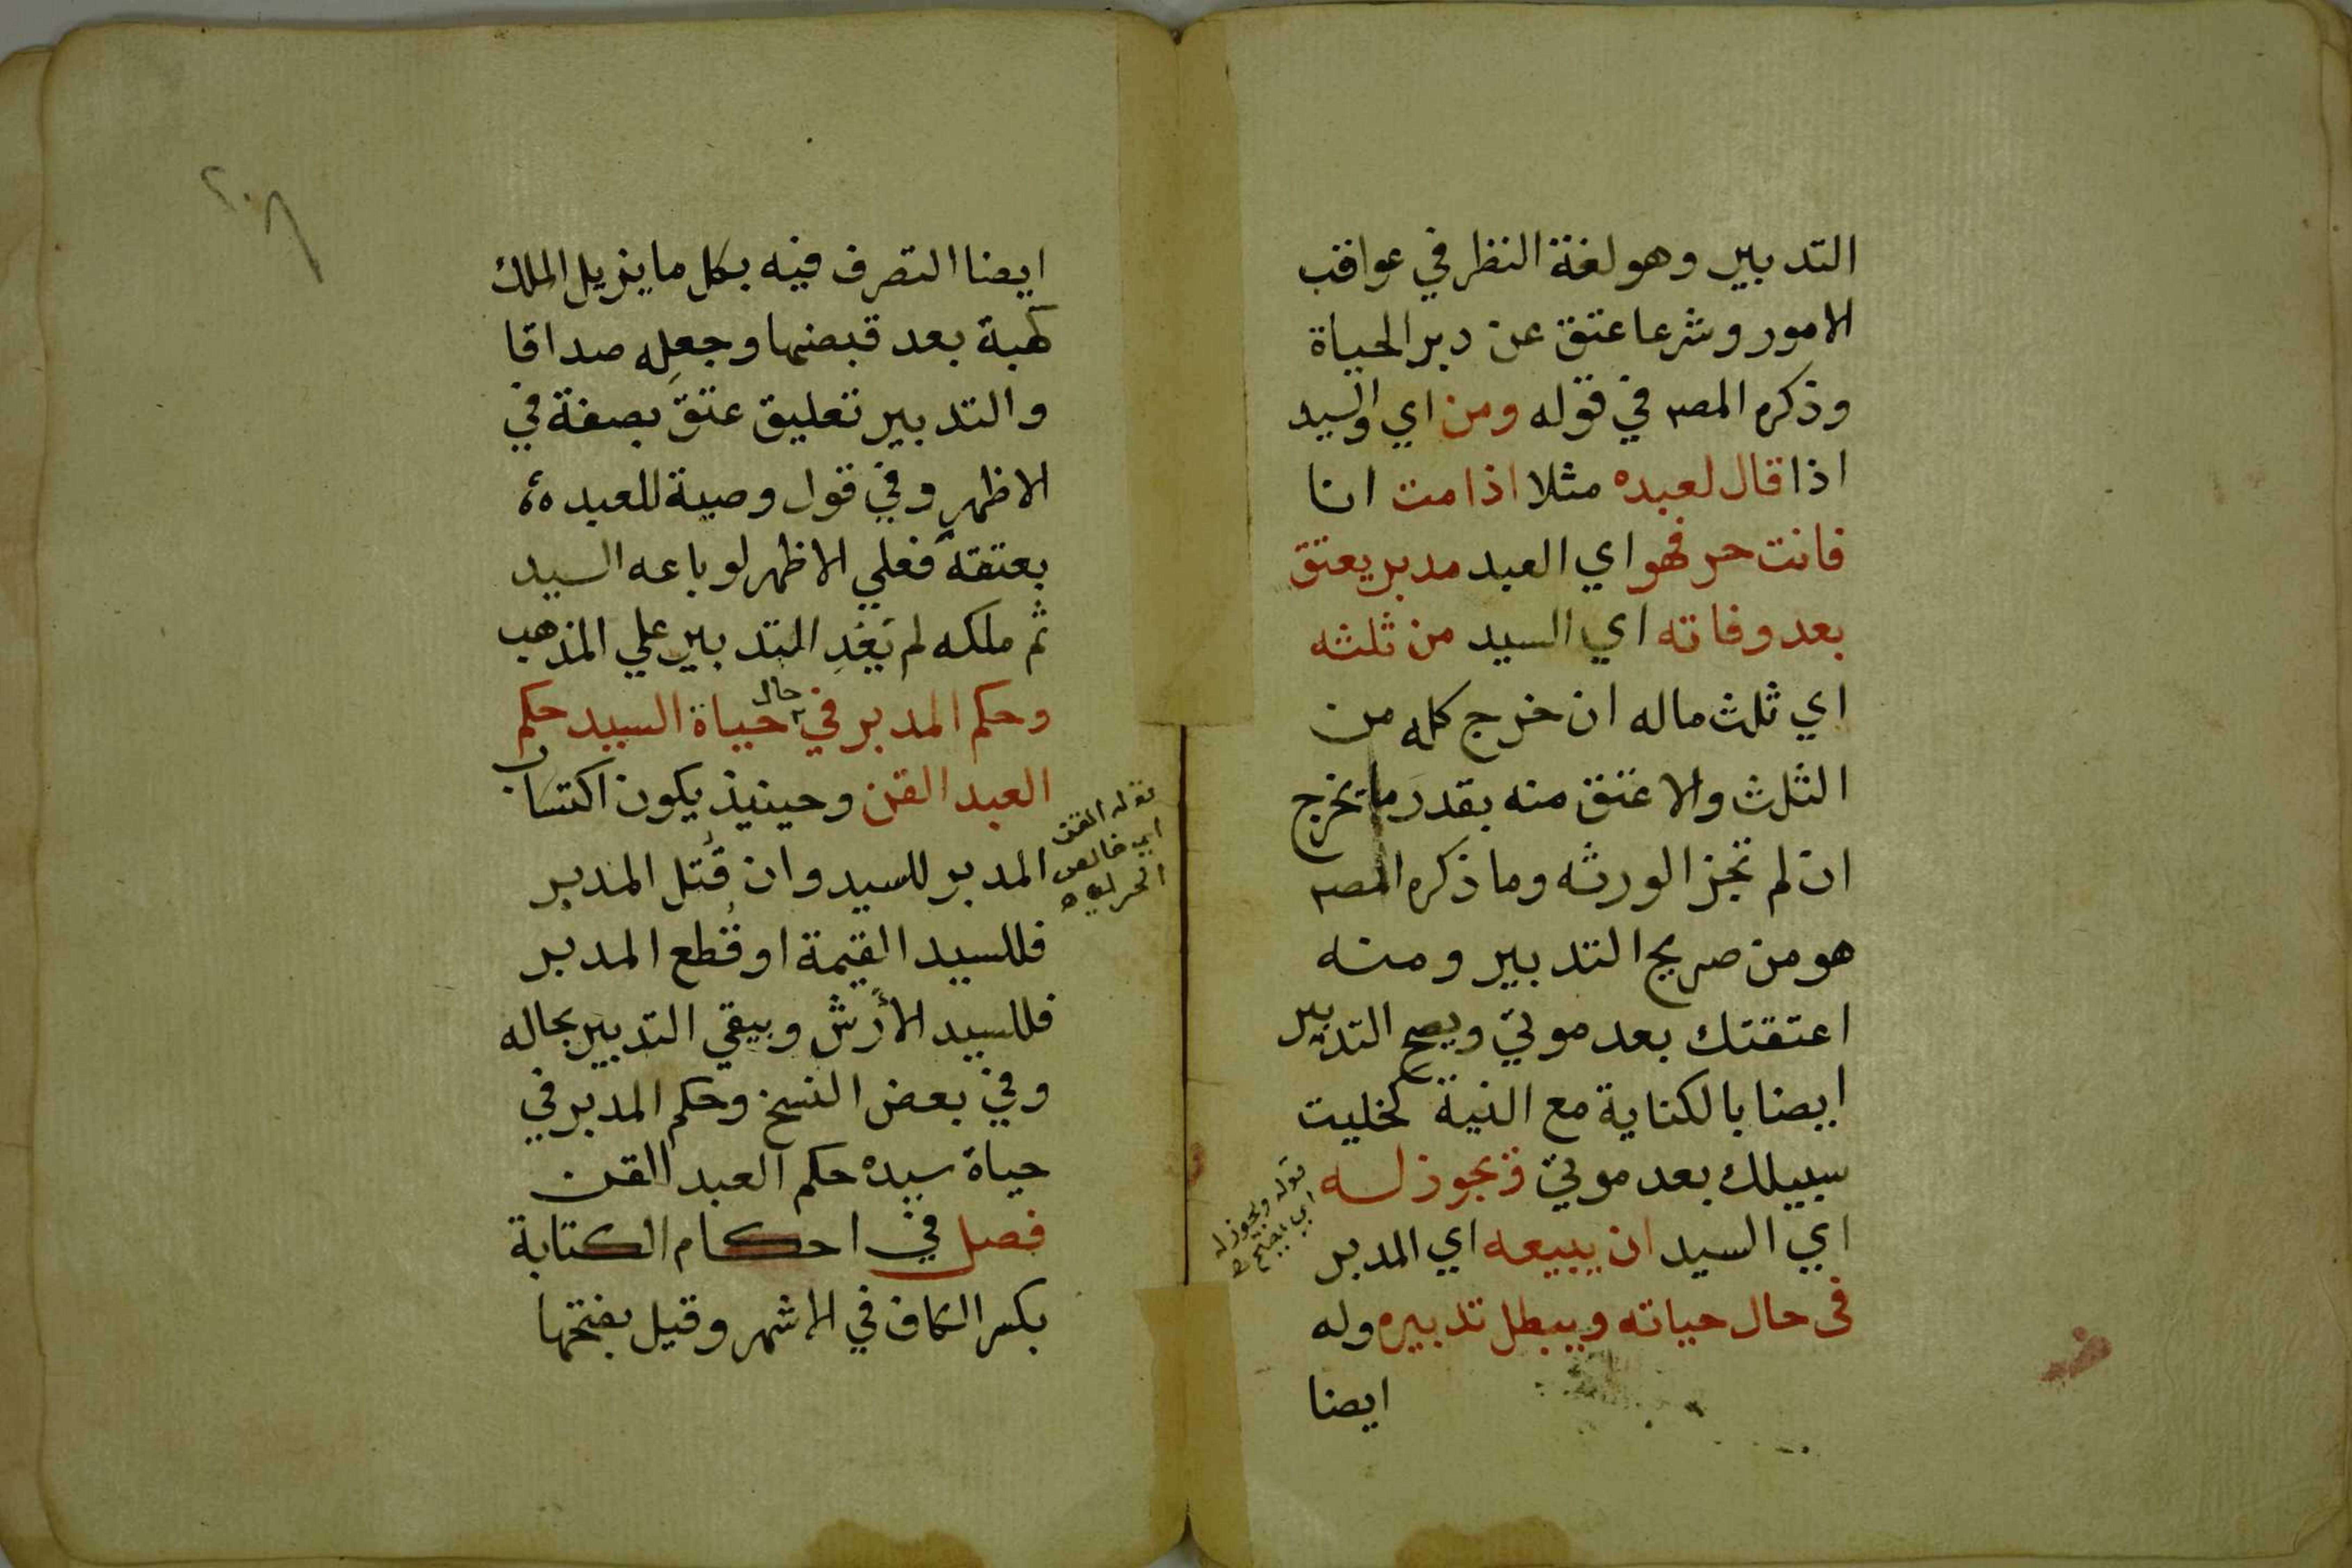 التدبير وهو لغة النظر في عواقب
الامور وشرعا عتق عن دبر الحياة
وذكره المصه في قوله ومن اي والسيد
اذا قال لعبده مثلا اذا مت انا
فانت حر فهو اي العبد مدبر يعتق
بعد وفاته اي السيد من ثلثه
اي ثلث ماله ان خرج كله من
الثلث والا عتق منه بقدر ما يخرج
ان لم تجز الورثه وما ذكره المصه
هو من صريح التدبير ومنه
اعتقتك بعد موتي ويصح التدبير
ايضا بالكناية مع النية كخليت
سبيلك بعد موتي ويجوز له
اي السيد ان يبيعه اي المدبر
في حال حياته ويبطل تدبيره وله
ايضا
قوله ويجوز له
اي يصح
٢٠٨
ايضا التصرف فيه بكل ما يزيل الملك
كهبة بعد قبضها وجعله صداقا
والتدبير تعليق عتق بصفة في
الاظهر وفي قول وصية للعبد
بعتقه فعلي الاظهر لو باعه السيد
ثم ملكه لم يعد التدبير علي المذهب
وحكم المدبر في حال حياة السيد حكم
العبد القن وحينيذ يكون اكتساب
المدبر للسيد وان قُتل المدبر
فللسيد القيمة او قُطع المدبر
فللسيد الأرش ويبقي التدبير بحاله
وفي بعض النسخ وحكم المدبر في
حياة سيده حكم العبد القن
فصل في احكام الكتابة
بكسر الكاف في الاشهر وقيل بفتحها
قوله القن
اي خالص